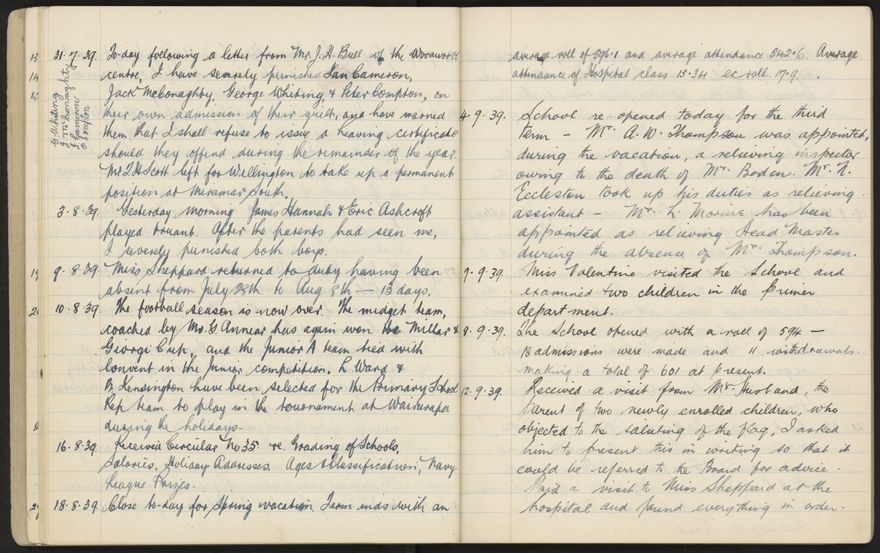 31.7.39. To-day following a letter from Mr J. H. Bull of the Woodwork
centre, I have severely punished Ian Cameron,
Jack McConaghty, George Whiting & Peter Compton, on
their own admission of their guilt, and have warned
them that I shall refuse to issue a leaving certificate
should they offend during the remainder of the year.
Mr J. H. Scott left for Wellington to take up a permanent
position at Miramar South.
G Whiting
J McConaghty
I Cameron
Compton
3.8.39. Yesterday morning James Hannah & Eric Ashcroft
played truant. After the parents had seen me,
I severely punished both boys.
9.8.39. Miss Sheppard returned to duty having been
absent from July 28th to Aug 8th — 13 days.
10.8.39. The football season is now over. The midget team,
coached by Mr G Annear has again won the Millar &
Giorgi Cup, and the Junior A team tied with
Convent in the Junior competition. L Ward &
B Kensington have been selected for the Primary School
Rep team to play in the tournament at Wairarapa
during the holidays.
16.8.39. Receive Circular No 35 re Grading of Schools,
Salaries, Holiday Addresses. Ages & Classification, Navy
League Prizes.
18.8.39. Close to-day for Spring vacation. Term ends with an
average roll of 596.1 and average attendance 542.6. Average
attendance of Hospital class 15.34 & roll 17.9.
4.9.39. School re-opened today for the third
term — Mr. A. W. Thompson was appointed,
during the vacation, a relieving inspector
owing to the death of Mr. Boden. Mr. N.
Eccleston took up his duties as relieving
assistant — Mr. L. has been
appointed as relieving Head Master
during the absence of Mr. Thompson.
7.9.39. Miss Valentine visited the School and
examined two children in the Primer
department.
8.9.39. The School opened with a roll of 594 —
18 admissions were made and 11 withdrawals.
making a total of 601 at present.
12.9.39. Received a visit from Mr. Husband, the
parent of two newly enrolled children, who
objected to the saluting of the flag. I asked
him to present this in writing so that it
could be referred to the Board for advice.
Paid a visit to Miss Sheppard at the
hospital and found everything in order.